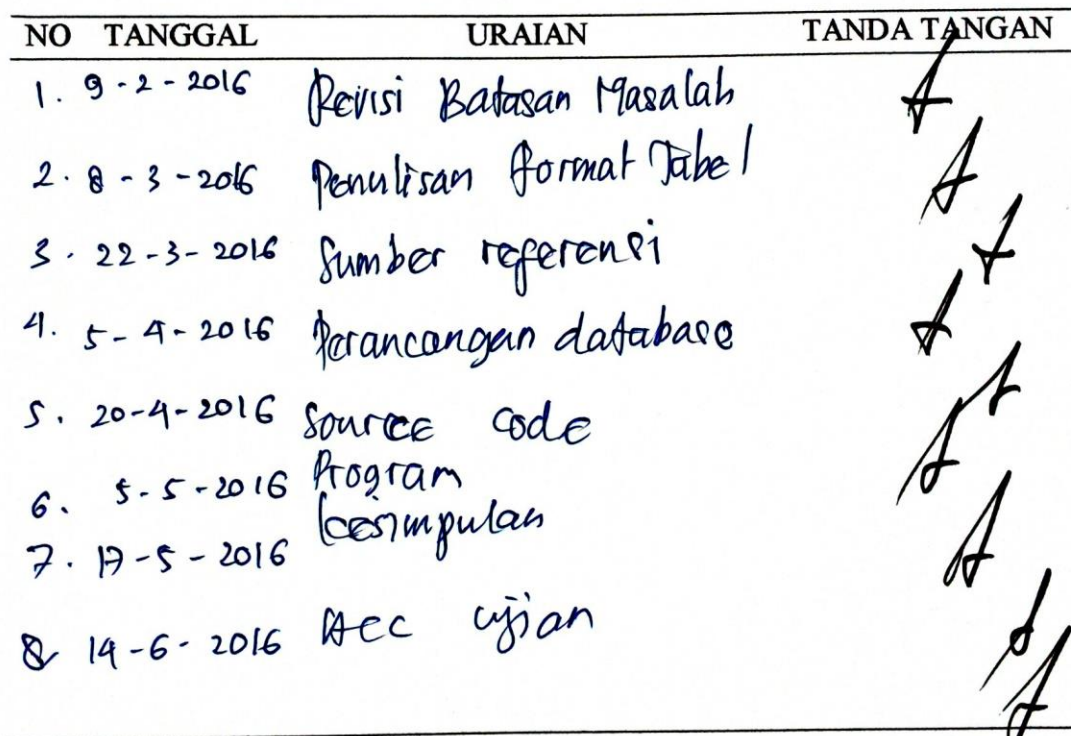 NO TANGGAL URAIAN TANDA TANGAN
1. 9-2-2016 Revisi Batasan Masalah
2. 8-3-2016 Penulisan format Tabel
3. 22-3-2016 Sumber referensi
4. 5-4-2016 Perancangan database
5. 20-4-2016 Source code
6. 5-5-2016 Program
7. 17-5-2016 kesimpulan
8 14-6-2016 Acc ujian